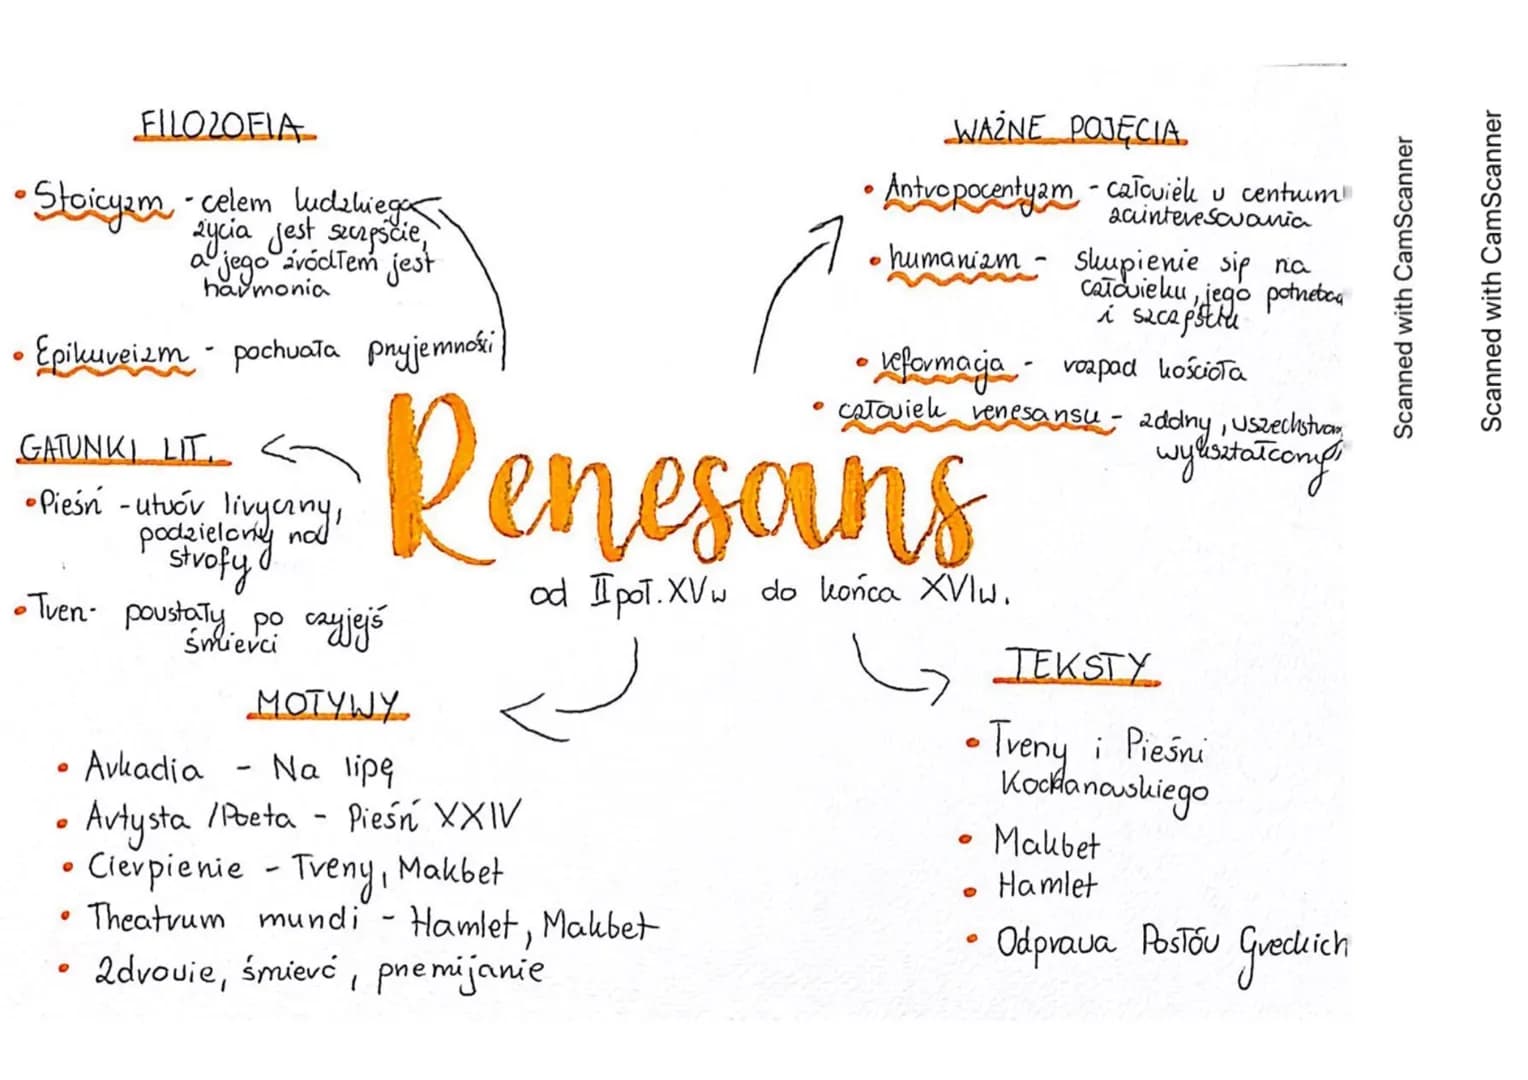 FILOZOFIA
• Stoicyzm - celem ludzkiego
życia jest szczęście,
a jego źródłem jest
harmonia
• Epikureizm - pochwała przyjemności
GATUNKI LIT.
• Pieśń - utwór liryczny,
podzielony na
strofy
• Tren - powstały po czyjejś
śmierci
Renesans
od II poł. XVw do końca XVIw.
WAŻNE POJĘCIA
• Antropocentyzm - człowiek w centrum
zainteresowania
• humanizm - skupienie się na
człowieku, jego potrzebach
i szczęściu
• reformacja - rozpad kościoła
• człowiek renesansu - zdolny, wszechstron
wykształcony
MOTYWY
• Arkadia - Na lipę
• Artysta / Poeta - Pieśń XXIV
• Cierpienie - Treny, Makbet
• Theatrum mundi - Hamlet, Makbet
• Zdrowie, śmierć, przemijanie
TEKSTY
• Treny i Pieśni
Kochanowskiego
• Makbet
• Hamlet
• Odprawa Posłów Greckich
Scanned with CamScanner
Scanned with CamScanner